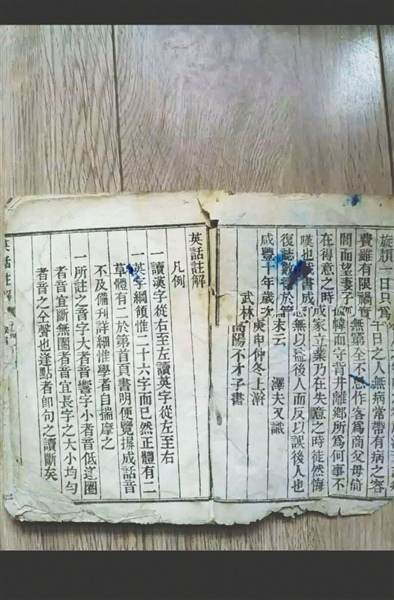 旋頭一日只為千日之人無病常帶有病之容
費雖有限禍實無窮第全不作客為商父母倚
閭而望妻子幃而守背井離鄉所為何事不
在得意之時成家立業乃在失意之時徒然悔
嘆也哉書成無以後人而反以誤後人也
復誌數於末云 澤夫又識
咸豐十年歲次庚申仲冬上澣
武林高陽不才子書
英話註解
凡例
一讀漢字從右至左讀英字從左至右
一英字綱領惟二十六字而已然正體有二
草體有二於第首頁書明便覽揖成話音
不及備刊詳細惟學者自揣摩之
一所註之音字大者音響字小者音低逆圈
者音宜斷無圈者音宜長字之大小均勻
者音之仝聲也逢點者卽句之讀斷矣
英話註解